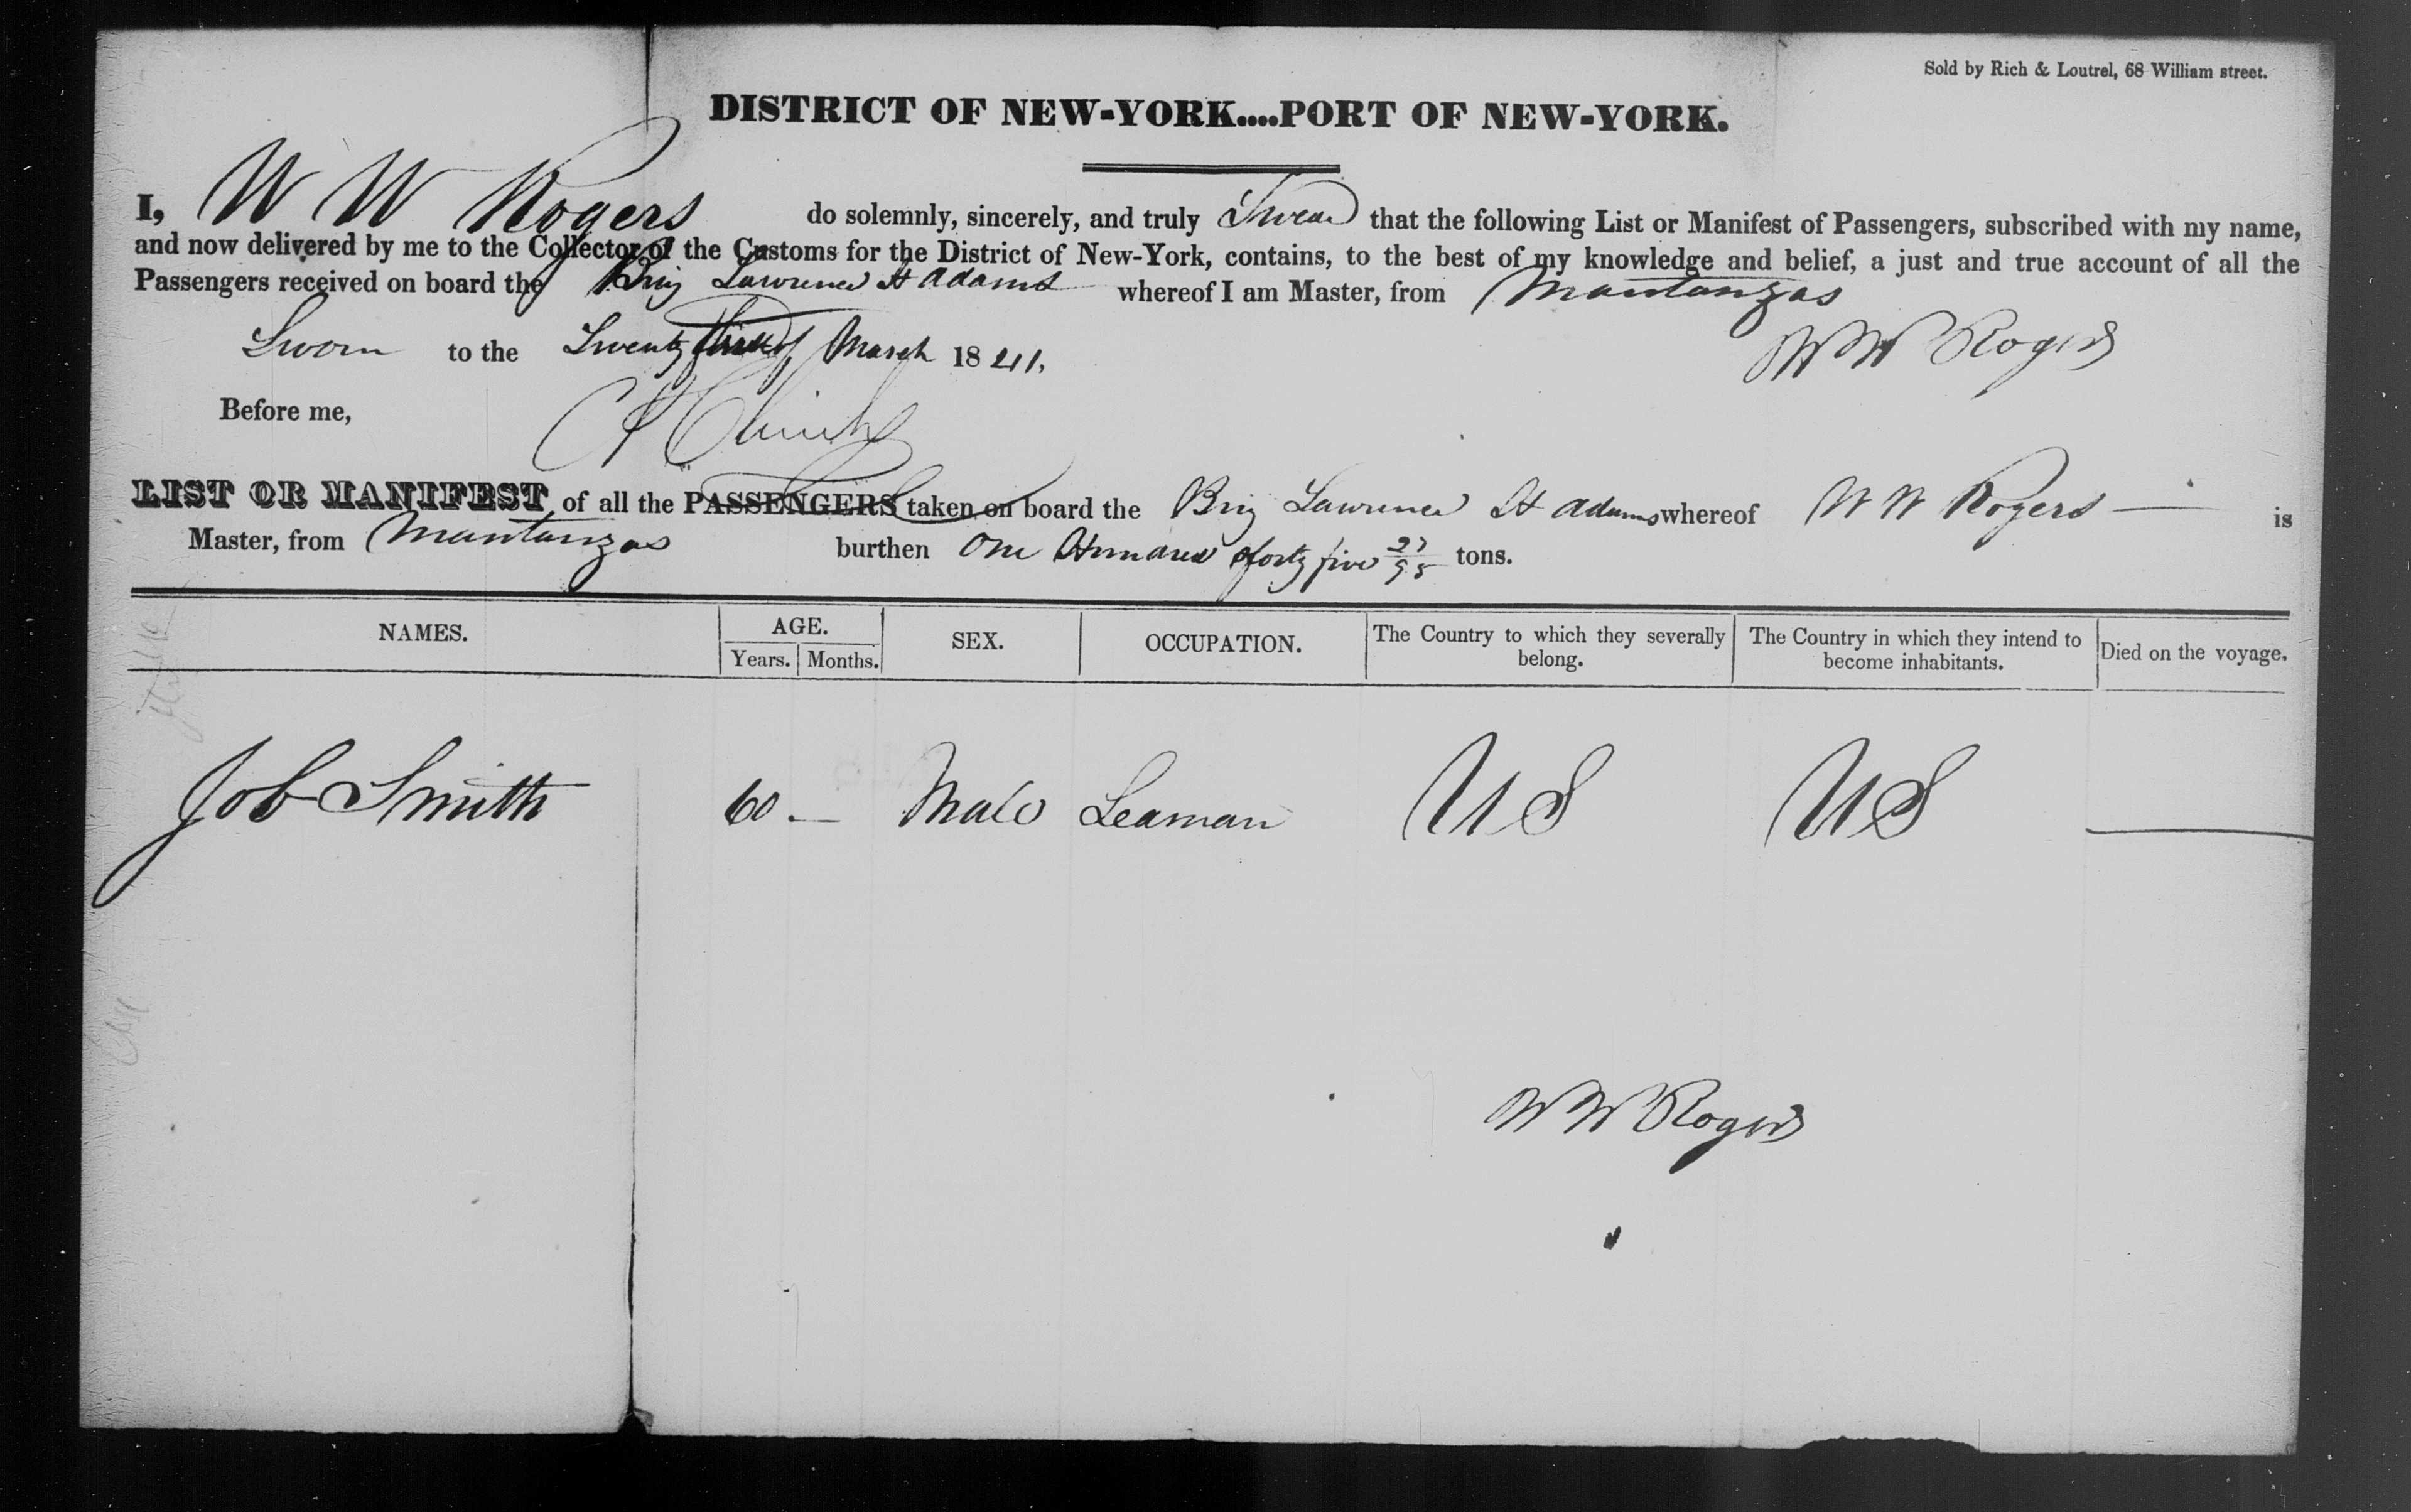 Sold by Rich & Loutrel, 68 William street.
DISTRICT OF NEW-YORK....PORT OF NEW-YORK.
I, W W Rogers do solemnly, sincerely, and truly Swear that the following List or Manifest of Passengers, subscribed with my name,
and now delivered by me to the Collector of the Customs for the District of New-York, contains, to the best of my knowledge and belief, a just and true account of all the
Passengers received on board the Brig Lawrence St Adams whereof I am Master, from Mantanzas
Sworn to the Twenty March 1841. W W Rogers
Before me,
LIST OR MANIFEST of all the PASSENGERS taken on board the Brig Lawrence St Adams whereof W W Rogers — is
Master, from Mantanzas burthen One Hundred & forty five 27/95 tons.
NAMES. AGE. SEX. OCCUPATION. The Country to which they severally belong. The Country in which they intend to become inhabitants. Died on the voyage.
Years. Months.
Job Smith 60 — Male Seaman U S U S —
W W Rogers